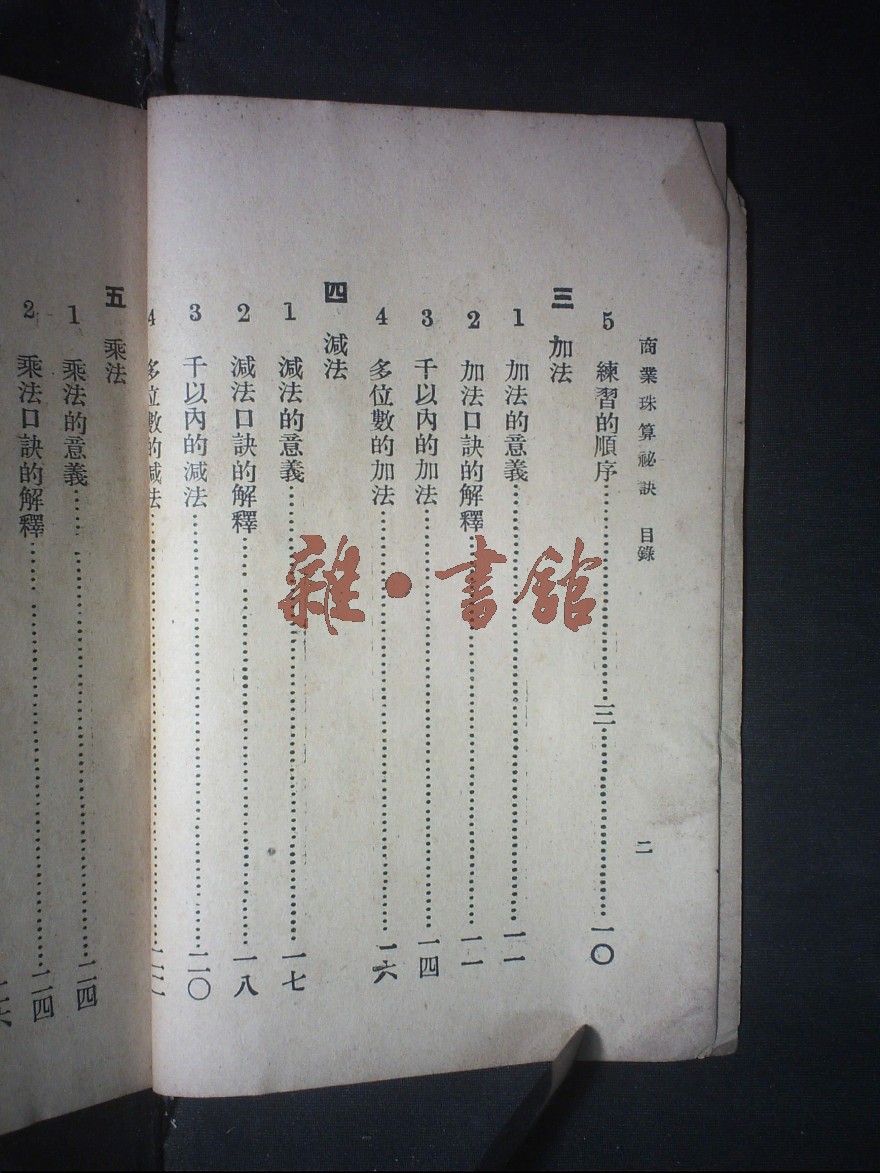 商業珠算祕訣 目錄 二
5 練習的順序……三……一〇
三 加法
1 加法的意義……一一
2 加法口訣的解釋……一一
3 千以內的加法……一四
4 多位數的加法……一六
四 減法
1 減法的意義……一七
2 減法口訣的解釋……一八
3 千以內的減法……二〇
4 多位數的減法……
五 乘法
1 乘法的意義……二四
2 乘法口訣的解釋……二四
雜・書館